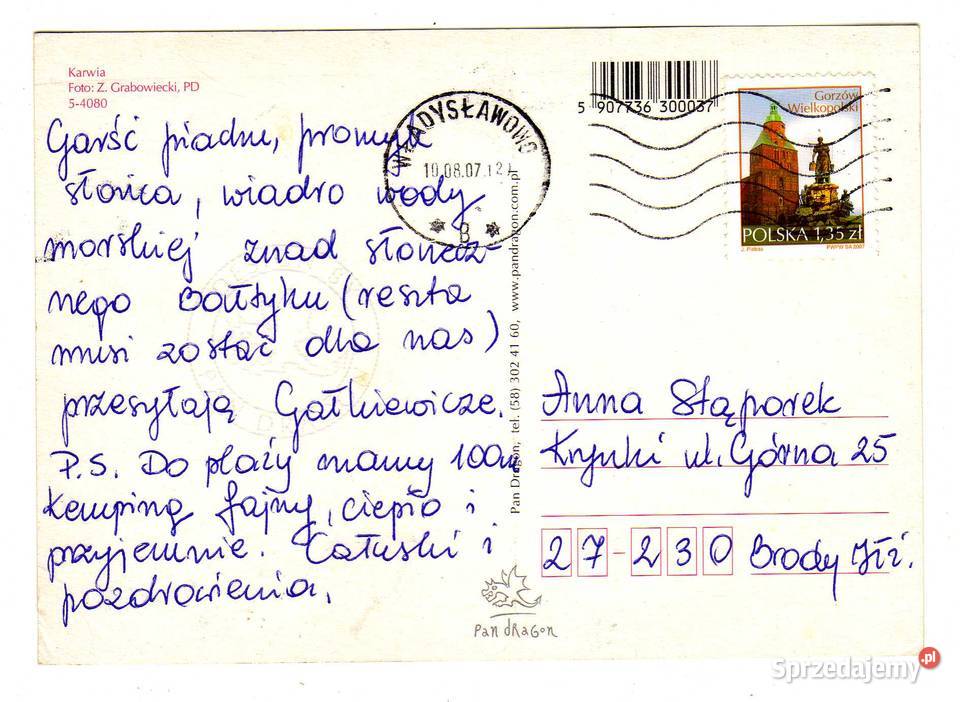 Karwia
Foto: Z. Grabowiecki, PD
5-4080
Garść piachu, promyk
słońca, wiadro wody
morskiej znad słonecz-
nego Bałtyku (reszta
musi zostać dla nas)
przesyłają Gałkiewicze.
P.S. Do plaży mamy 100m
Kemping fajny, ciepło i
przyjemnie. Całuski i
pozdrowienia.
WŁADYSŁAWOWO
10.08.07.12
B
5 907736 300037
Gorzów
Wielkopolski
POLSKA 1,35 zł
PWPW SA 2007
Pan Dragon, tel. (58) 302 41 60, www.pandragon.com.pl
Anna Stąporek
Krynki ul. Górna 25
27-230 Brody Iłż.
Pan dRagon
Sprzedajemy.pl